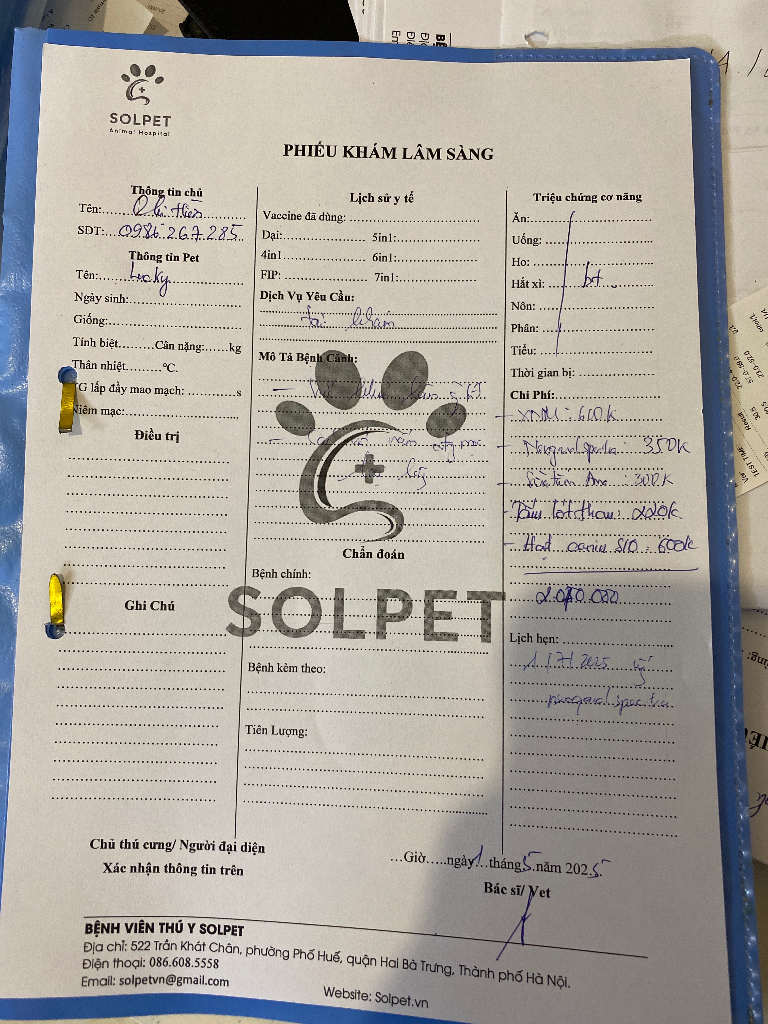 SOLPET
Animal Hospital
PHIẾU KHÁM LÂM SÀNG
Thông tin chủ
Tên: Chị Hiền
SDT: 0986 267 285
Thông tin Pet
Tên: Lucky
Ngày sinh:
Giống:
Tính biệt......Cân nặng:......kg
Thân nhiệt.......°C.
TG lấp đầy mao mạch: ..........s
Niêm mạc:
Điều trị
Ghi Chú
Lịch sử y tế
Vaccine đã dùng:
Dại: 5in1:
4in1 6in1:
FIP: 7in1:
Dịch Vụ Yêu Cầu:
Tái khám
Mô Tả Bệnh Cảnh:
Chẩn đoán
Bệnh chính:
SOLPET
Bệnh kèm theo:
Tiên Lượng:
Triệu chứng cơ năng
Ăn:
Uống:
Ho:
Hắt xì: bt
Nôn:
Phân:
Tiểu:
Thời gian bị:
Chi Phí:
- XNM : 600K
- Nexgard spectra : 350K
- Sữa tắm : 300K
- Tắm : 220K
- S10 : 600K
Lịch hẹn:
1/7/2025
nexgard spectra
Chủ thú cưng/ Người đại diện
Xác nhận thông tin trên
...Giờ.....ngày 1 tháng 5 năm 2025
Bác sĩ/ Vet
BỆNH VIÊN THÚ Y SOLPET
Địa chỉ: 522 Trần Khát Chân, phường Phố Huế, quận Hai Bà Trưng, Thành phố Hà Nội.
Điện thoại: 086.608.5558
Email: solpetvn@gmail.com
Website: Solpet.vn